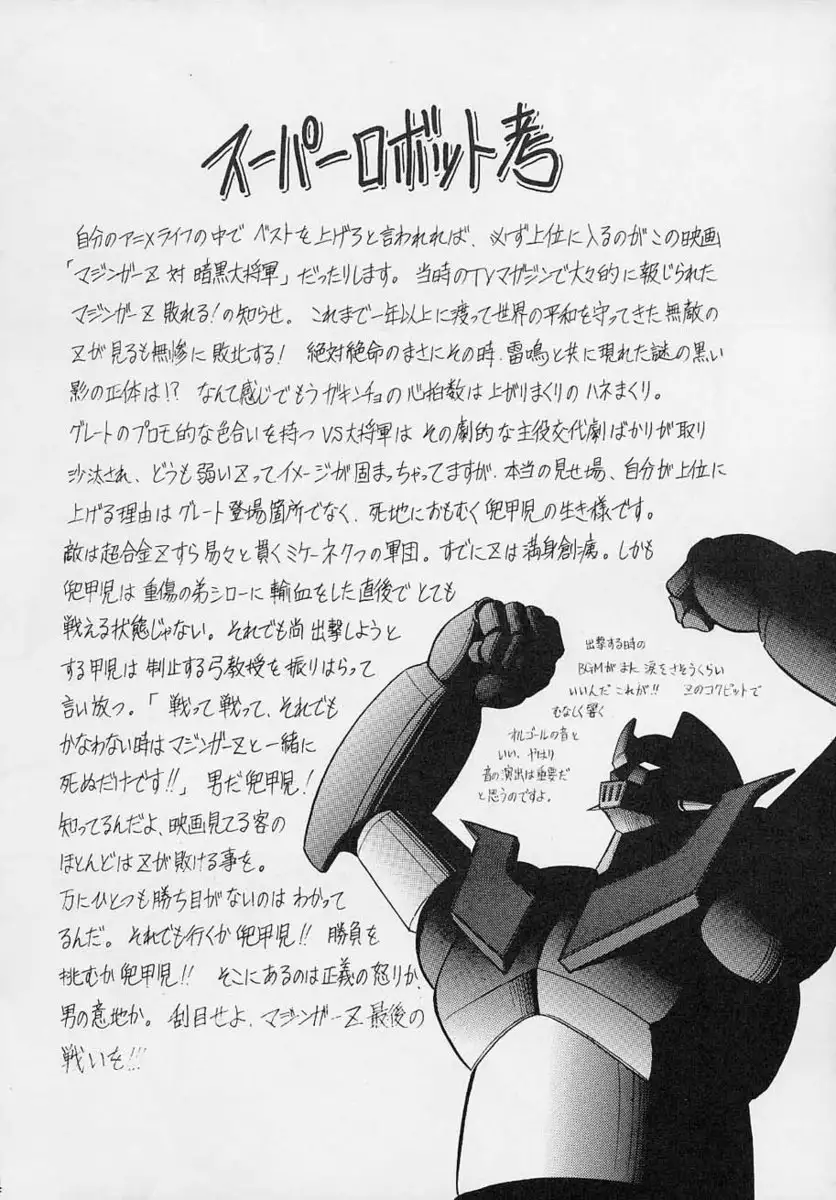 スーパーロボット考
自分のアニメライフの中で ベストを上げろと言われれば、必ず上位に入るのがこの映画
「マジンガーZ 対 暗黒大将軍」だったりします。当時のTVマガジンで大々的に報じられた
マジンガーZ 敗れる！の知らせ。これまで一年以上に渡って世界の平和を守ってきた無敵の
Zが見るも無惨に敗北する！ 絶対絶命のまさにその時、雷鳴と共に現れた謎の黒い
影の正体は!? なんて感じでもうガキンチョの心拍数は上がりまくりのハネまくり。
グレートのプロモ的な色合いを持つVS大将軍は その劇的な主役交代劇ばかりが取り
沙汰され、どうも弱いZってイメージが固まっちゃってますが、本当の見せ場、自分が上位に
上げる理由はグレート登場箇所でなく、死地におもむく兜甲児の生き様です。
敵は超合金Zすら易々と貫くミケーネ7つの軍団。すでにZは満身創痍。しかも
兜甲児は重傷の弟シローに輸血をした直後でとても
戦える状態じゃない。それでも尚 出撃しようと
する甲児は 制止する弓教授を振りはらって
言い放つ。「戦って戦って、それでも
かなわない時はマジンガーZと一緒に
死ぬだけです!!」男だ兜甲児！
知ってるんだよ、映画見てる客の
ほとんどはZが敗ける事を。
万にひとつも勝ち目がないのは わかって
るんだ。それでも行くか兜甲児!! 勝負を
挑むか兜甲児!! そこにあるのは正義の怒りか、
男の意地か。刮目せよ、マジンガーZ 最後の
戦いを!!!
出撃する時の
BGMがまた 涙をさそうくらい
いいんだ これが!! Zのコクピットで
むなしく響く
オルゴールの音と
いい、やはり
音の演出は重要だ
と思うのですよ。